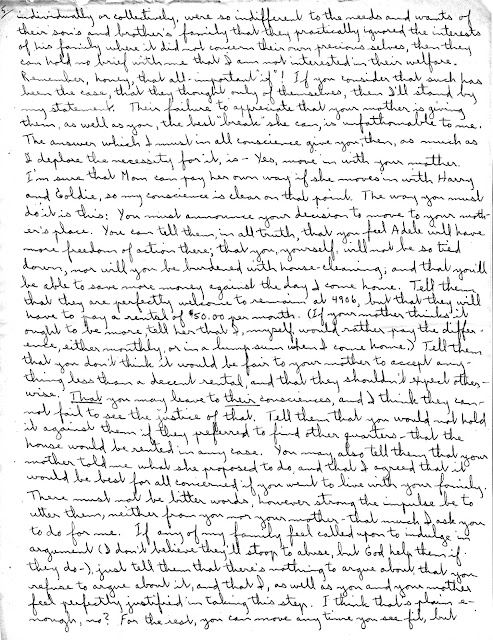 individually or collectively, were so indifferent to the needs and wants of
their son's and brother's family that they practically ignored the interests
of his family where it did not concern their own precious selves, then they
can hold no brief with me that I am not interested in their welfare.
Remember, honey, that all-important "if"! If you consider that such has
been the case, that they thought only of themselves, then I'll stand by
my statement. Their failure to appreciate that your mother is giving
them, as well as you, the best "break" she can, is unfathomable to me.
The answer which I must in all conscience give you, then, as much as
I deplore the necessity for it, is - Yes, move in with your mother.
I'm sure that Mom can pay her own way if she moves in with Harry
and Goldie, so my conscience is clear on that point. The way you must
do it is this: You must announce your decision to move to your moth-
er's place. You can tell them, in all truth, that you feel Adele will have
more freedom of action there; that you, yourself, will not be so tied
down, nor will you be burdened with house-cleaning; and that you'll
be able to save more money against the day I come home. Tell them
that they are perfectly welcome to remain at 4906, but that they will
have to pay a rental of $50.00 per month. (If your mother thinks it
ought to be more, tell her that I, myself would rather pay the differ-
ence, either monthly, or in a lump sum when I come home.) Tell them
that you don't think it would be fair to your mother to accept any-
thing less than a decent rental, and that they shouldn't expect other-
wise. That you may leave to their consciences, and I think they can-
not fail to see the justice of that. Tell them that you would not hold
it against them if they preferred to find other quarters - that the
house would be rented in any case. You may also tell them that your
mother told me what she proposed to do, and that I agreed that it
would be best for all concerned if you went to live with your family.
There must not be bitter words, however strong the impulse be to
utter them, neither from you nor your mother - that much I ask you
to do for me. If any of my family feel called upon to indulge in
argument (I don't believe they'll stoop to abuse, but God help them if
they do-), just tell them that there's nothing to argue about, that you
refuse to argue about it, and that I, as well as you and your mother
feel perfectly justified in taking this step. I think that's plain e-
nough, no? For the rest, you can move any time you see fit, but